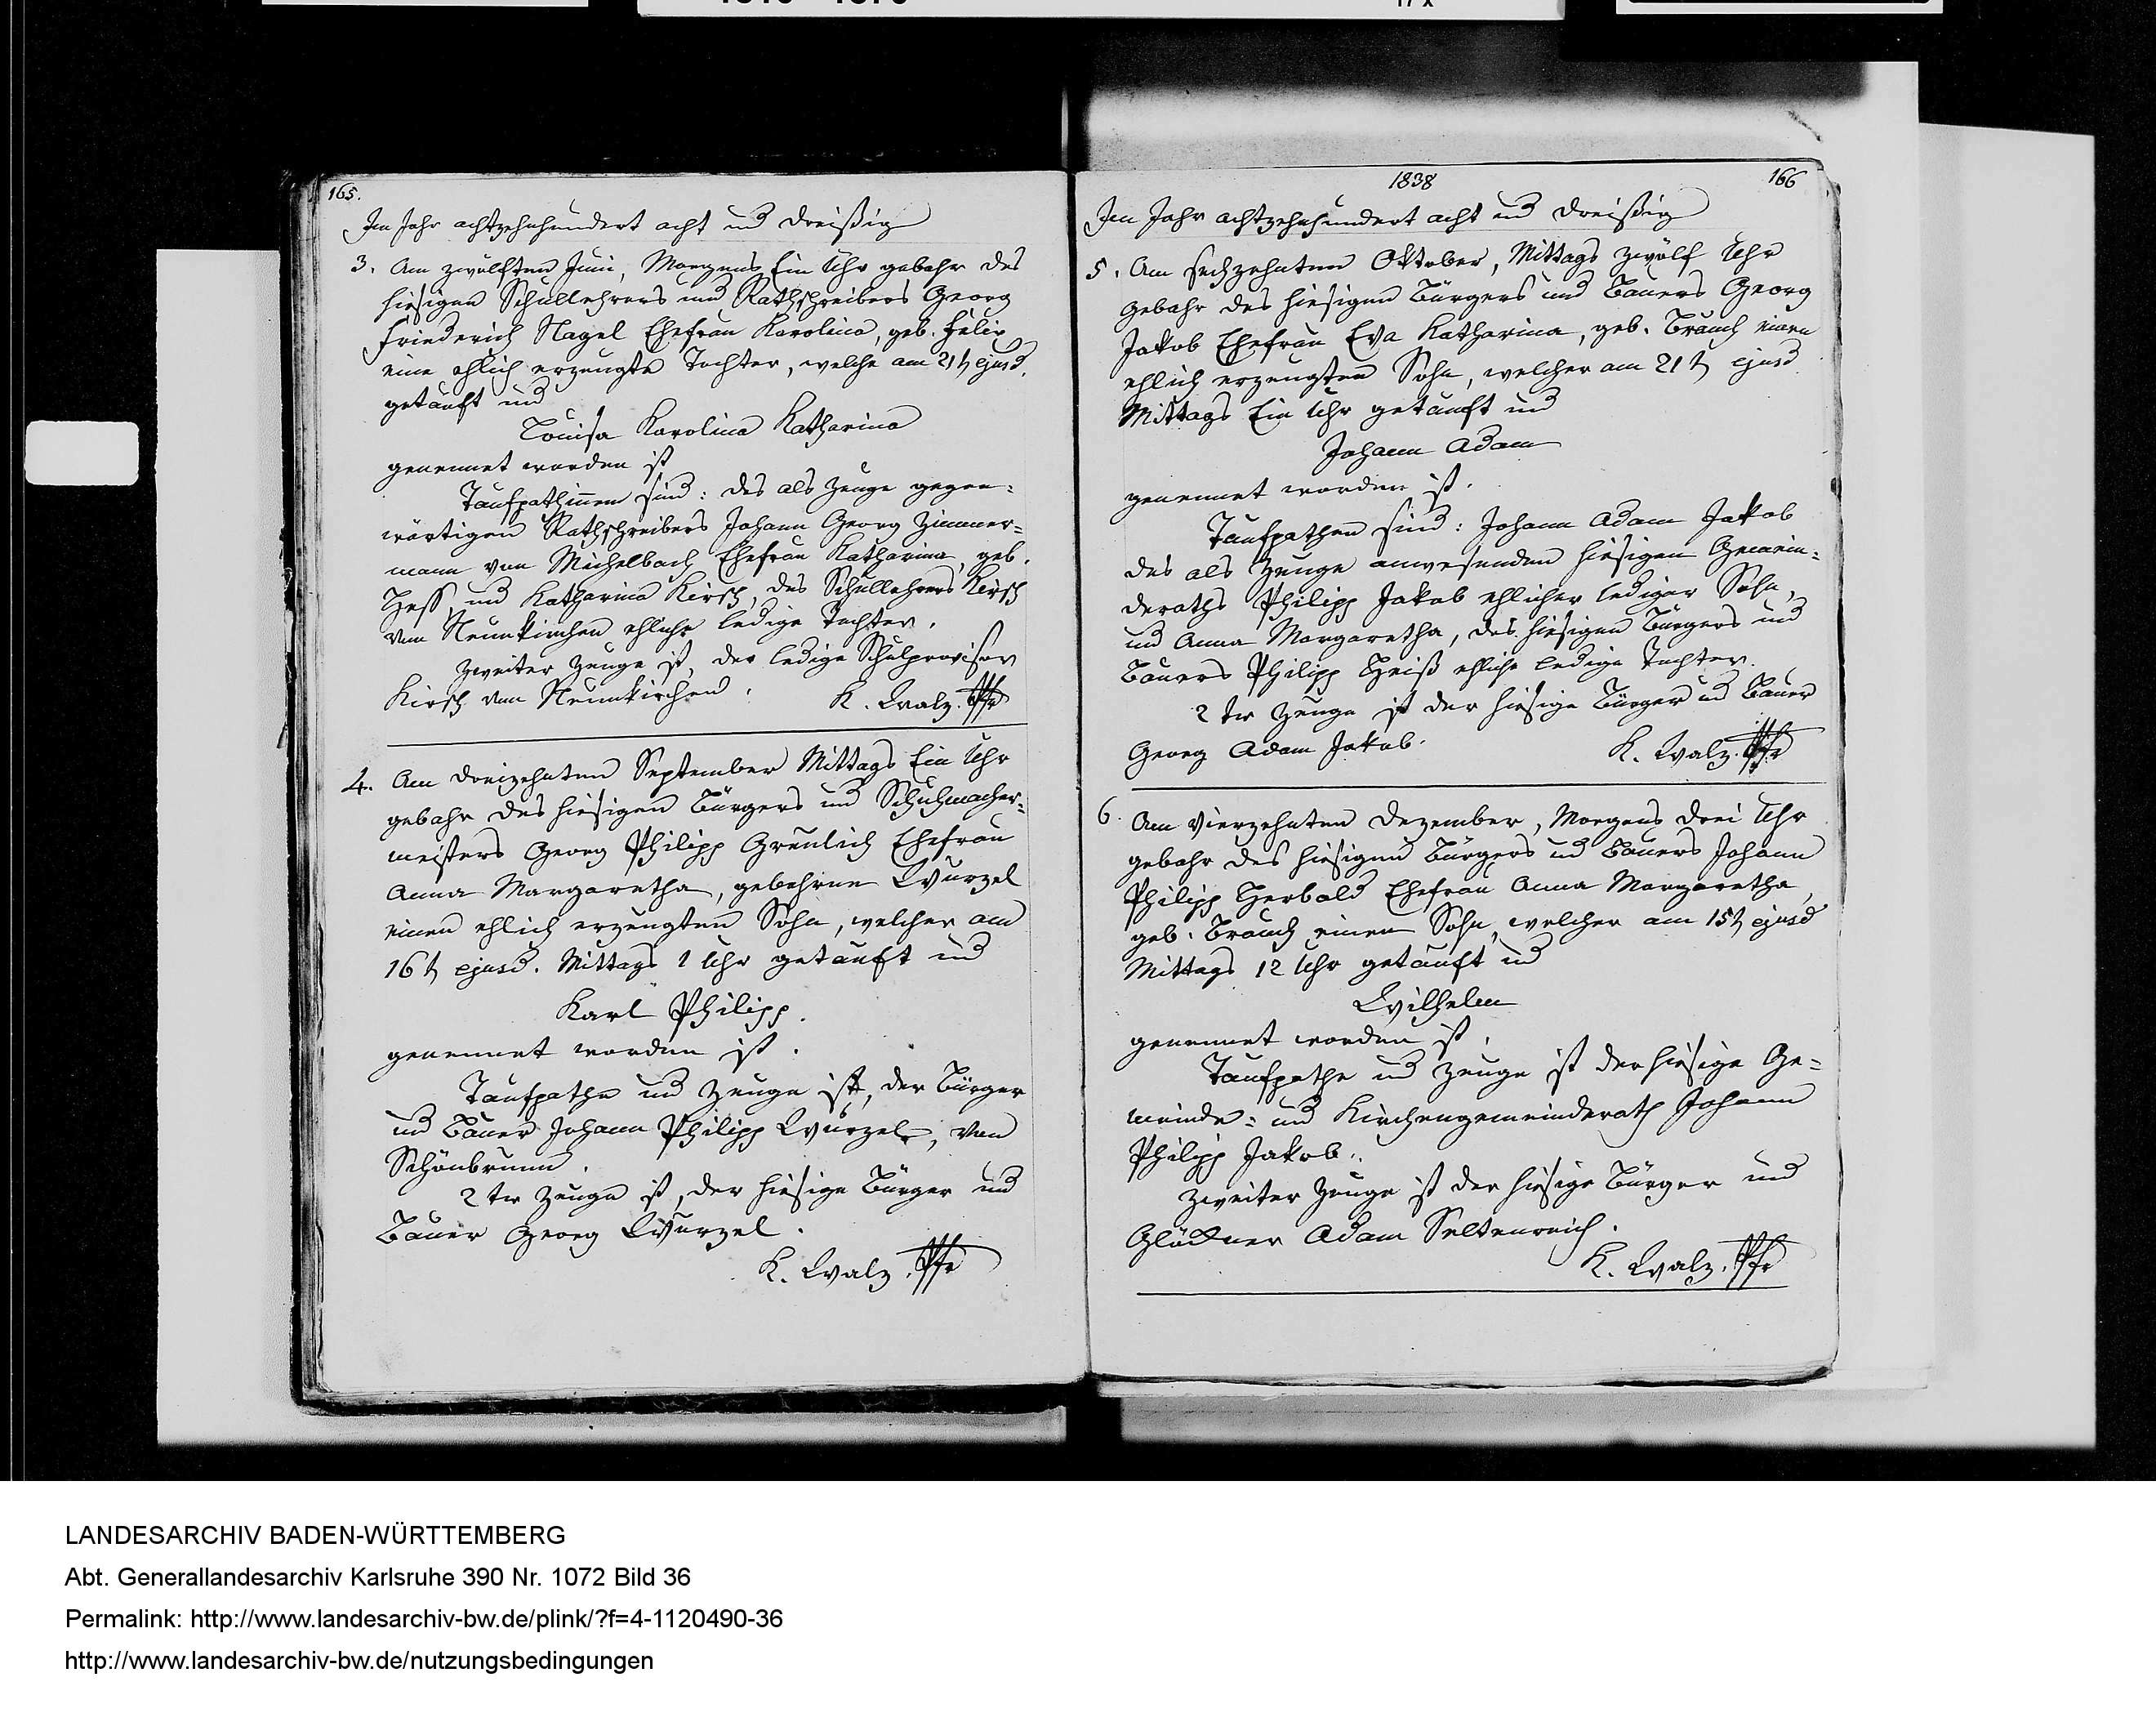 165.
Im Jahr achtzehnhundert acht und dreißig
3. Am zwölften Juni, Morgens Ein Uhr gebahr des
hiesigen Schullehrers und Rathschreibers Georg
Friederich Nagel Ehefrau Karolina, geb. Helix
eine ehlich erzeugte Tochter, welche am 21t ejusd.
getauft und
Louisa Karolina Katharina
genennet worden ist
Taufpathinnen sind: des als Zeuge gegen=
wärtigen Rathschreibers Johann Georg Zimmer=
mann von Michelbach Ehefrau Katharina, geb.
Hess, und Katharina Kirsch, des Schullehrers Kirsch
von Neunkirchen ehliche ledige Tochter.
Zweiter Zeuge ist, der ledige Schulprovisor
Kirsch von Neunkirchen.
K. Walz. Pfr
4. Am dreizehnten September Mittags Ein Uhr
gebahr des hiesigen Bürgers und Schuhmacher=
meisters Georg Philipp Greulich Ehefrau
Anna Margaretha, gebohrne Wurzel
einen ehlich erzeugten Sohn, welcher am
16t ejusd. Mittags 1 Uhr getauft und
Karl Philipp.
genennet worden ist.
Taufpathe und Zeuge ist, der Bürger
und Bauer Johann Philipp Wurzel, von
Schönbrunn.
2ter Zeuge ist, der hiesige Bürger und
Bauer Georg Wurzel.
K. Walz. Pfr
1838
166
Im Jahr achtzehnhundert acht und dreißig
5. Am sechzehnten Oktober, Mittags zwölf Uhr
gebahr des hiesigen Bürgers und Bauers Georg
Jakob Ehefrau Eva Katharina, geb. Brauch einen
ehlich erzeugten Sohn, welcher am 21t ejusd
Mittags Ein Uhr getauft und
Johann Adam
genennet worden ist.
Taufpathen sind: Johann Adam Jakob
des als Zeuge anwesenden hiesigen Gemein=
deraths Philipp Jakob ehlicher lediger Sohn,
und Anna Margaretha, des hiesigen Bürgers und
Bauers Philipp Heiß ehliche ledige Tochter.
2ter Zeuge ist der hiesige Bürger und Bauer
Georg Adam Jakob.
K. Walz. Pfr
6. Am vierzehnten Dezember, Morgens drei Uhr
gebahr des hiesigen Bürgers und Bauers Johann
Philipp Herbold Ehefrau Anna Margaretha,
geb. Brauch einen Sohn, welcher am 15t ejusd
Mittags 12 Uhr getauft und
Wilhelm
genennet worden ist.
Taufpathe und Zeuge ist der hiesige Ge=
meinde= und Kirchengemeinderath Johann
Philipp Jakob.
Zweiter Zeuge ist der hiesige Bürger und
Glöckner Adam Seltenreich.
K. Walz. Pfr
LANDESARCHIV BADEN-WÜRTTEMBERG
Abt. Generallandesarchiv Karlsruhe 390 Nr. 1072 Bild 36
Permalink: http://www.landesarchiv-bw.de/plink/?f=4-1120490-36
http://www.landesarchiv-bw.de/nutzungsbedingungen